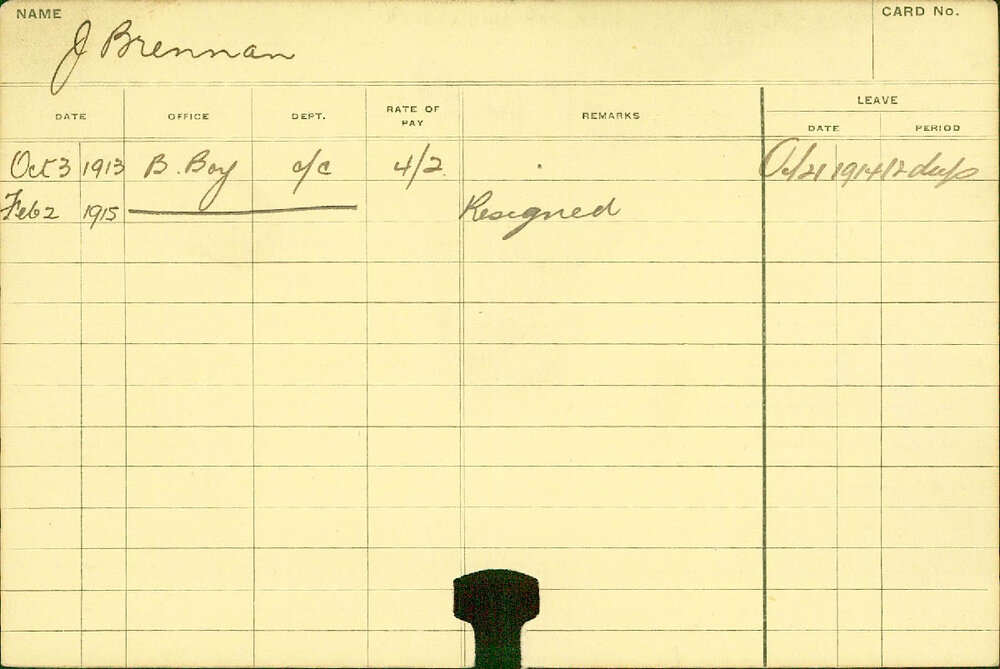 NAME
CARD No.
J Brennan
DATE OFFICE DEPT. RATE OF PAY REMARKS LEAVE
DATE PERIOD
Oct 3 1913 B. Boy o/c 4/2 Oc/21 1914 12 days
Feb 2 1915 Resigned